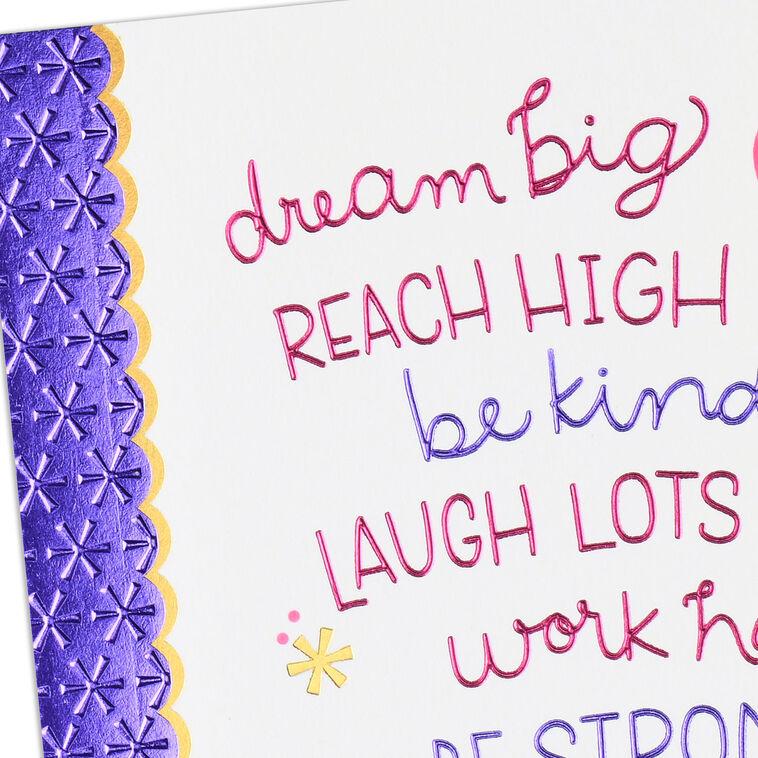 dream big
REACH HIGH
be kind
LAUGH LOTS
work
BE STRON